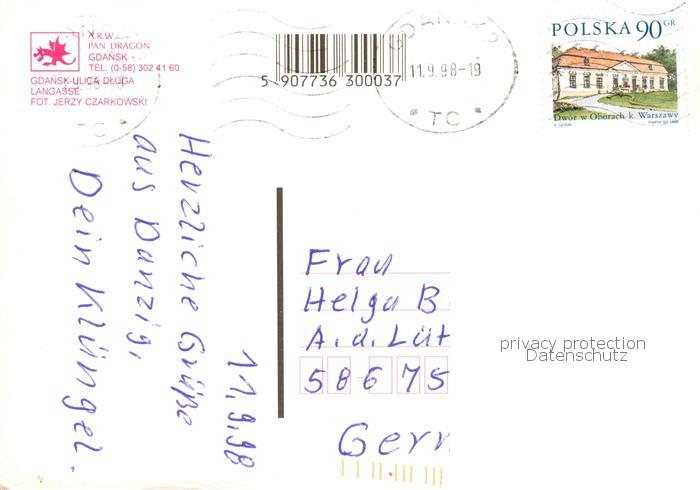 A.R.W.
PAN DRAGON
GDAŃSK
TEL. (0-58) 302 41 60
GDAŃSK-ULICA DŁUGA
LANGASSE
FOT. JERZY CZARKOWSKI
5 907736 300037
11.9.98-19
* TC *
TC
POLSKA 90 GR
Dwór w Oborach k. Warszawy
11.9.98
Herzliche Grüße
aus Danzig,
Dein Klüngel.
Frau
Helga B
A. d. Lüt
58675
Germ
privacy protection
Datenschutz